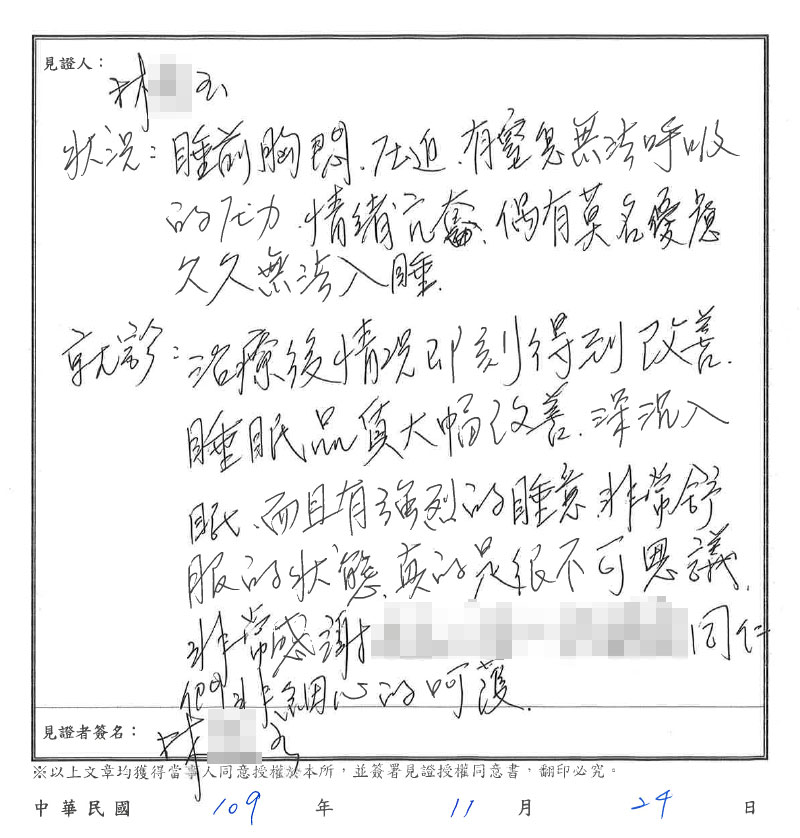 見證人：
林 玉
狀況：睡前胸悶、压迫、有窒息無法呼吸
的压力、情緒亢奮、偶有莫名優慮
久久無法入睡.
就診：治療後情況即刻得到改善.
睡眠品質大幅改善、深沉入
眠、而且有強烈的睡意、非常舒
服的狀態、真的是很不可思議.
非常感謝 同仁
們非 細心的呵護.
見證者簽名：
林
※以上文章均獲得當事人同意授權於本所，並簽署見證授權同意書，翻印必究。
中華民國 109 年 11 月 24 日